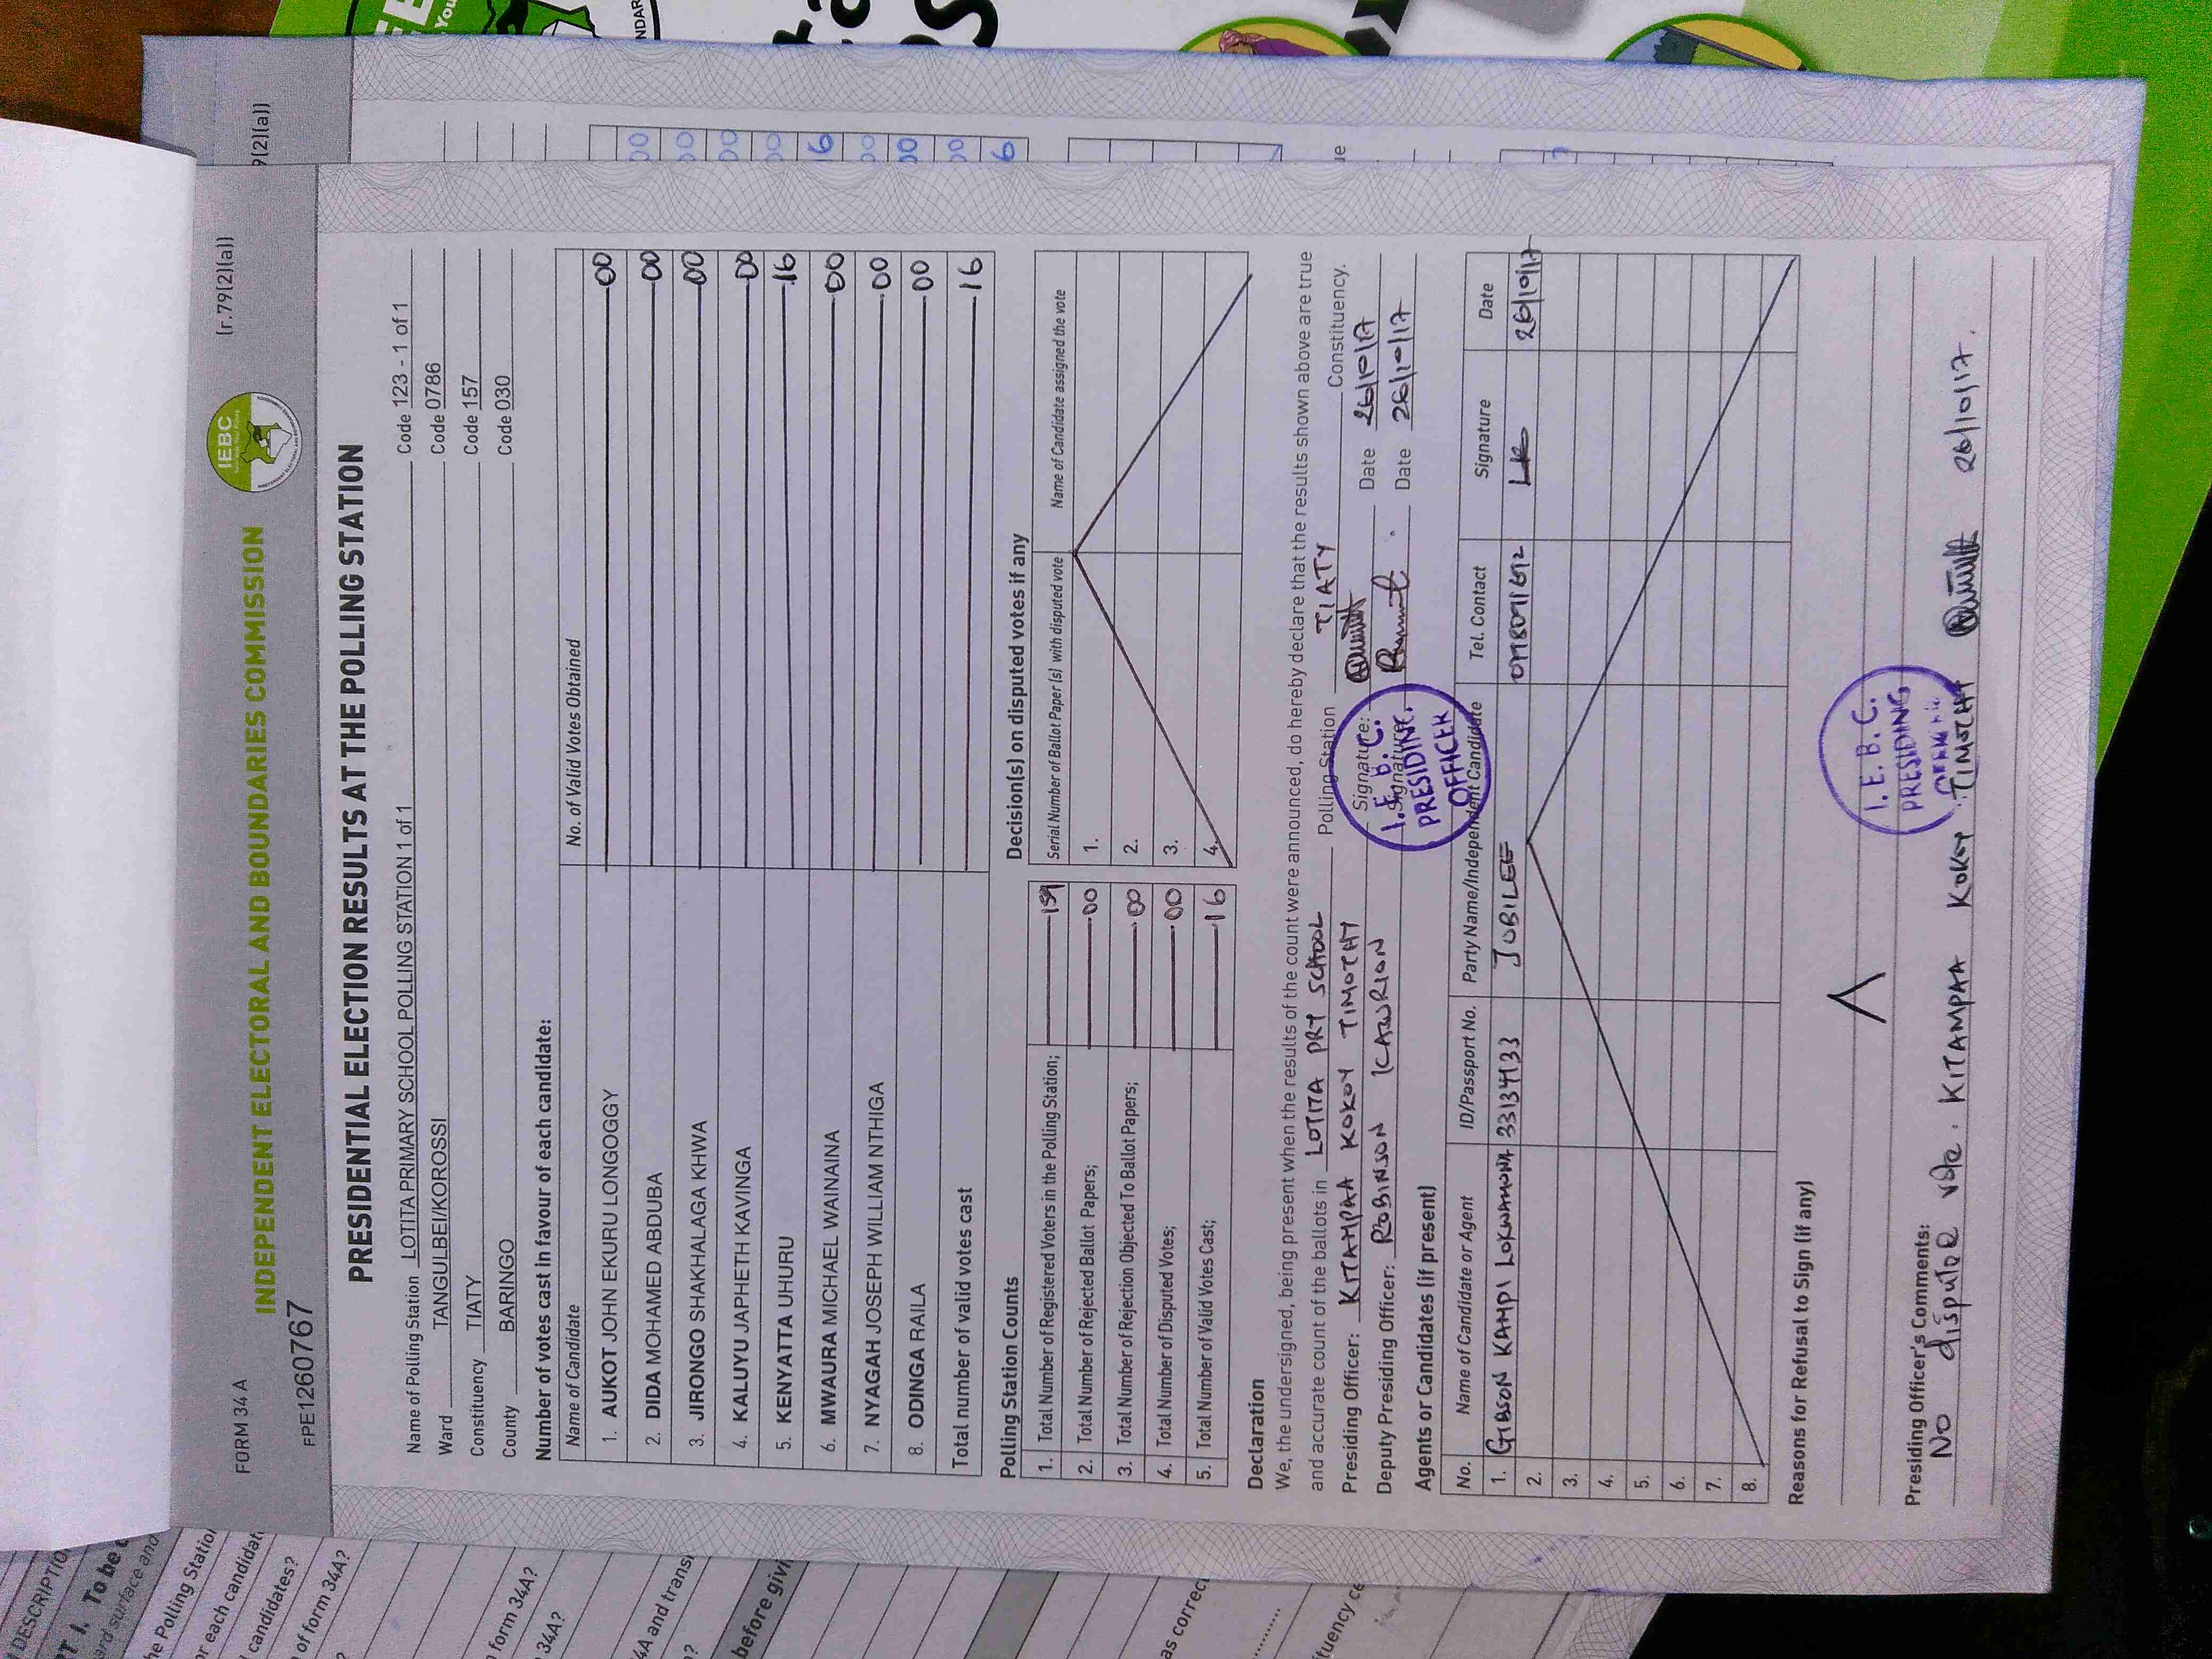 FORM 34 A
(r.79(2)(a))
INDEPENDENT ELECTORAL AND BOUNDARIES COMMISSION
IEBC
FPE1260767
PRESIDENTIAL ELECTION RESULTS AT THE POLLING STATION
Name of Polling Station LOTITA PRIMARY SCHOOL POLLING STATION 1 of 1 Code 123 - 1 of 1
Ward TANGULBEI/KOROSSI Code 0786
Constituency TIATY Code 157
County BARINGO Code 030
Number of votes cast in favour of each candidate:
Name of Candidate No. of Valid Votes Obtained
1. AUKOT JOHN EKURU LONGOGGY 00
2. DIDA MOHAMED ABDUBA 00
3. JIRONGO SHAKHALAGA KHWA 00
4. KALUYU JAPHETH KAVINGA 00
5. KENYATTA UHURU 16
6. MWAURA MICHAEL WAINAINA 00
7. NYAGAH JOSEPH WILLIAM NTHIGA 00
8. ODINGA RAILA 00
Total number of valid votes cast 16
Polling Station Counts
1. Total Number of Registered Voters in the Polling Station;
2. Total Number of Rejected Ballot Papers; 00
3. Total Number of Rejection Objected To Ballot Papers; 00
4. Total Number of Disputed Votes; 00
5. Total Number of Valid Votes Cast; 16
Decision(s) on disputed votes if any
Serial Number of Ballot Paper (s) with disputed vote Name of Candidate assigned the vote
1.
2.
3.
4.
Declaration
We, the undersigned, being present when the results of the count were announced, do hereby declare that the results shown above are true
and accurate count of the ballots in LOTITA PRY SCHOOL Polling Station TIATY Constituency.
Presiding Officer: KITAMPAA KOKOY TIMOTHY Signature: Date 26/10/17
Deputy Presiding Officer: ROBINSON KAWRION Signature: Date 26/10/17
I.E.B.C. PRESIDING OFFICER
Agents or Candidates (if present)
No. Name of Candidate or Agent ID/Passport No. Party Name/Independent Candidate Tel. Contact Signature Date
1. GIBSON KAMPI 33134133 JUBILEE 26/10/17
2.
3.
4.
5.
6.
7.
8.
Reasons for Refusal to Sign (if any)
I.E.B.C.
PRESIDING
Presiding Officer's Comments:
No dispute vote. KITAMPAA KOKOY TIMOTHY 26/10/17.